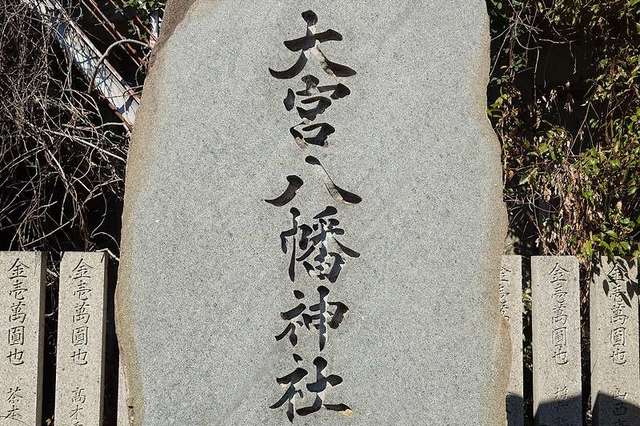 大宮八幡神社
金壱萬圓也
金壱萬圓也
金壱萬圓也
金壱萬圓也